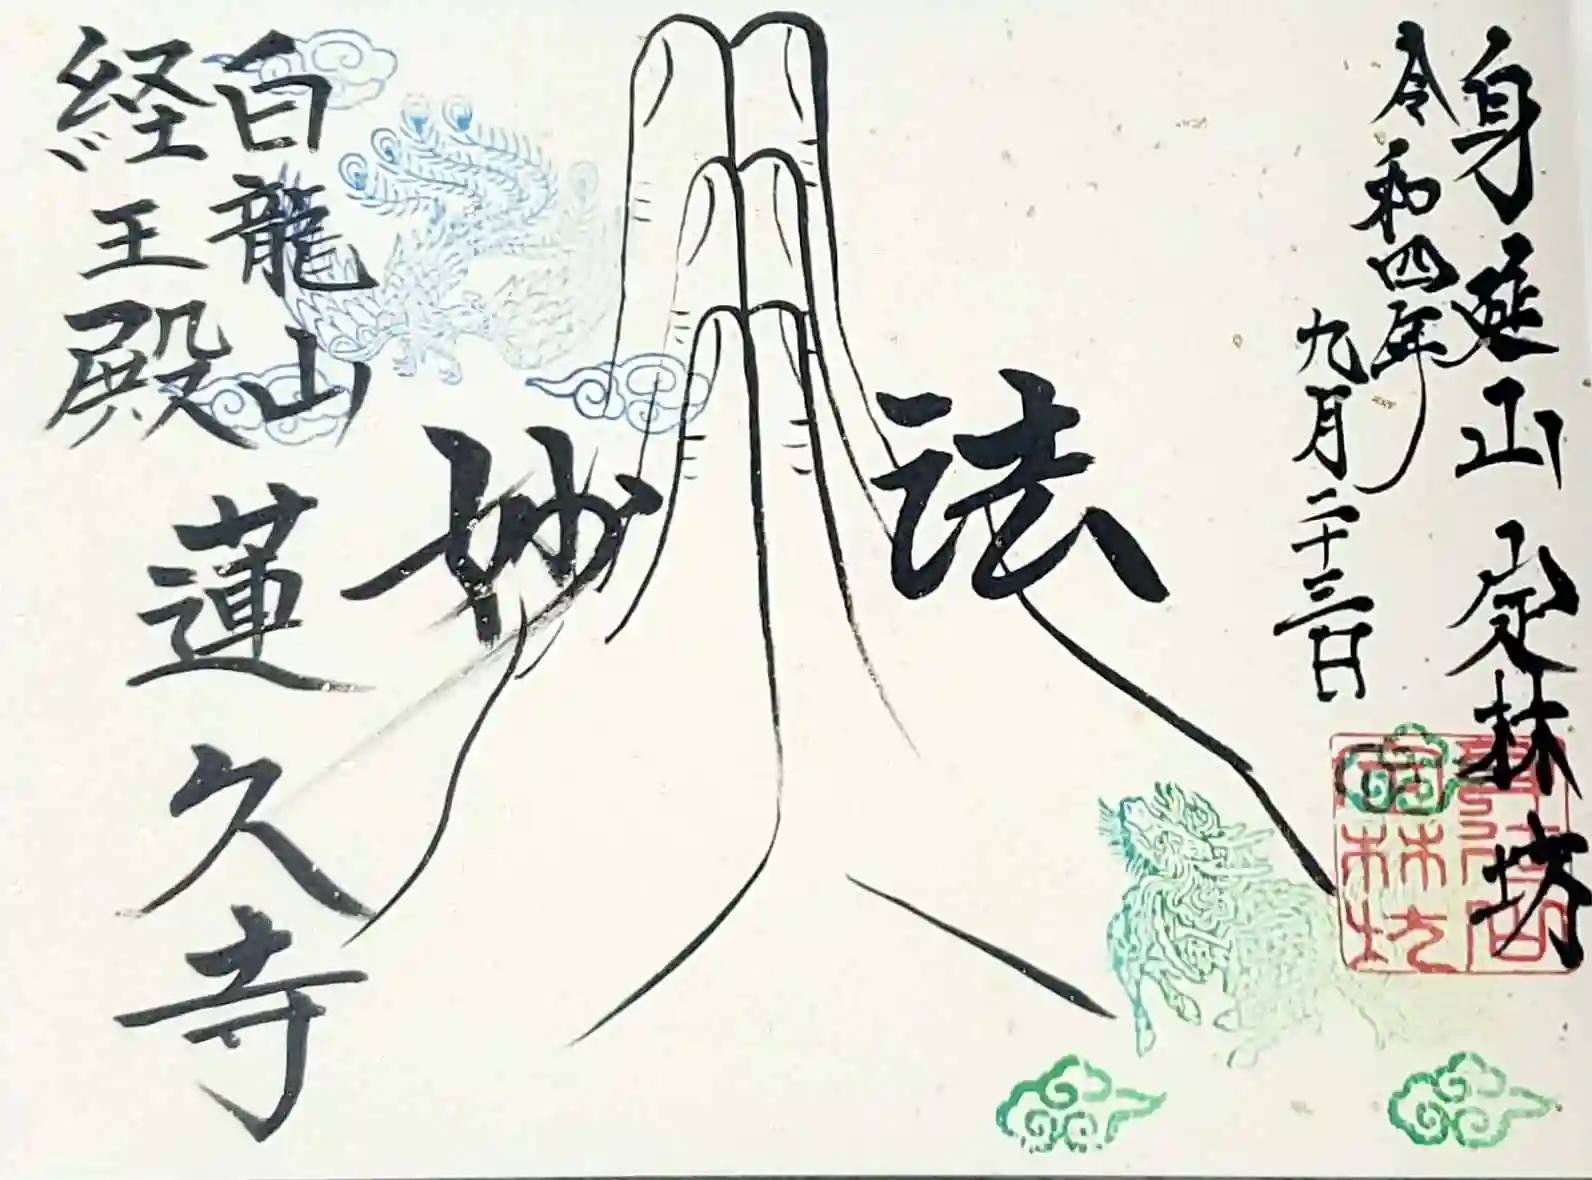 身延山 定林坊
令和四年
九月二十三日
法
妙
白龍山
経王殿
蓮久寺